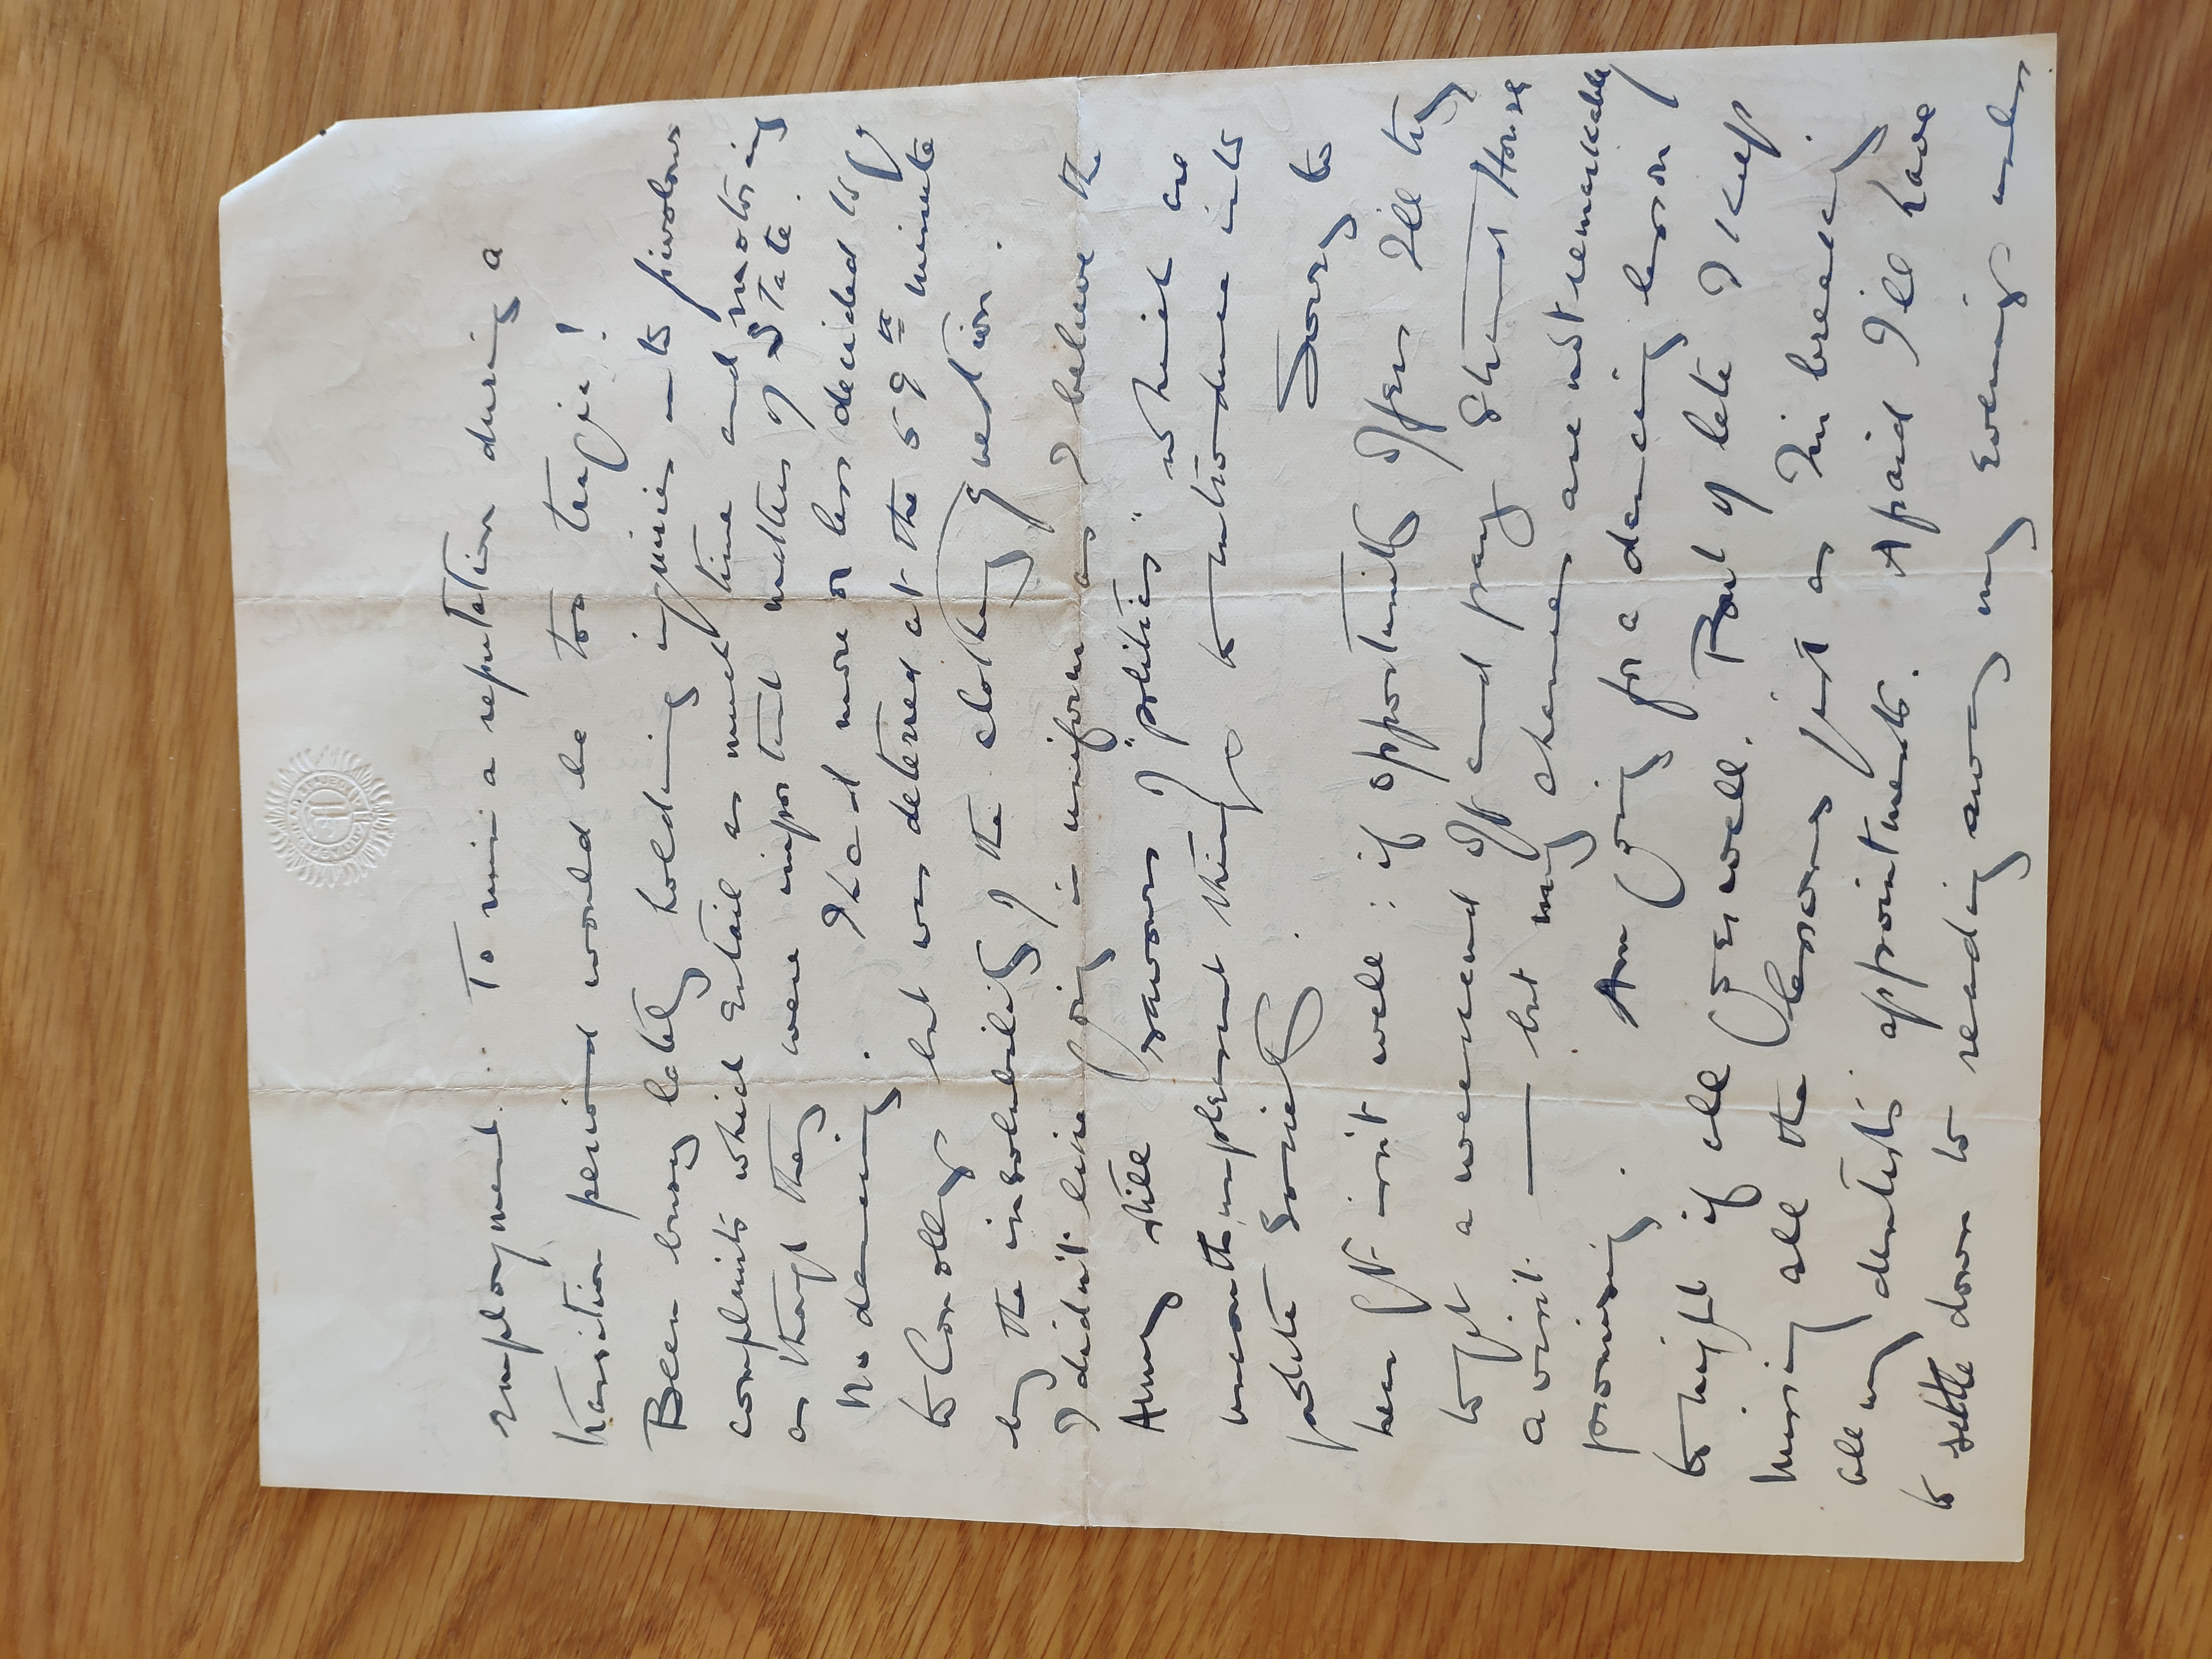 employment. To ruin a reputation during a
transition period would be too tragic!
Been busy lately holding inquiries into frivolous
complaints which entail as much time and motoring
as though they were important matters of State.
No dancing. I had more or less decided to go
to Conollys but was deterred at the 59th minute
by the insolubility of the clothing question.
I didn't like going in uniform as I believe the
Army still savours of "politics" which are
uncouth unpleasant things to introduce into
polite Society. Sorry to
hear Pt. isn't well: if opportunity offers I'll try
to get a weekend off and pay Strand House
a visit. — but my chances are not remarkably
promising. Am going for a dancing lesson
tonight if all goes well. But of late I keep
missing all the lessons just as I'm breaking
all my dentists' appointments. Afraid I'll have
to settle down to reading away my evenings under